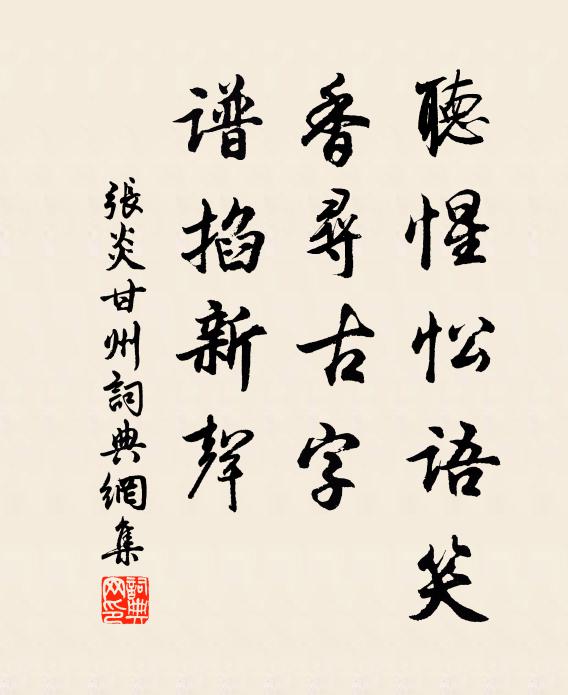 聽惺忪語笑
香尋古字
譜掐新聲
張炎甘州詞典網集
詞典网印